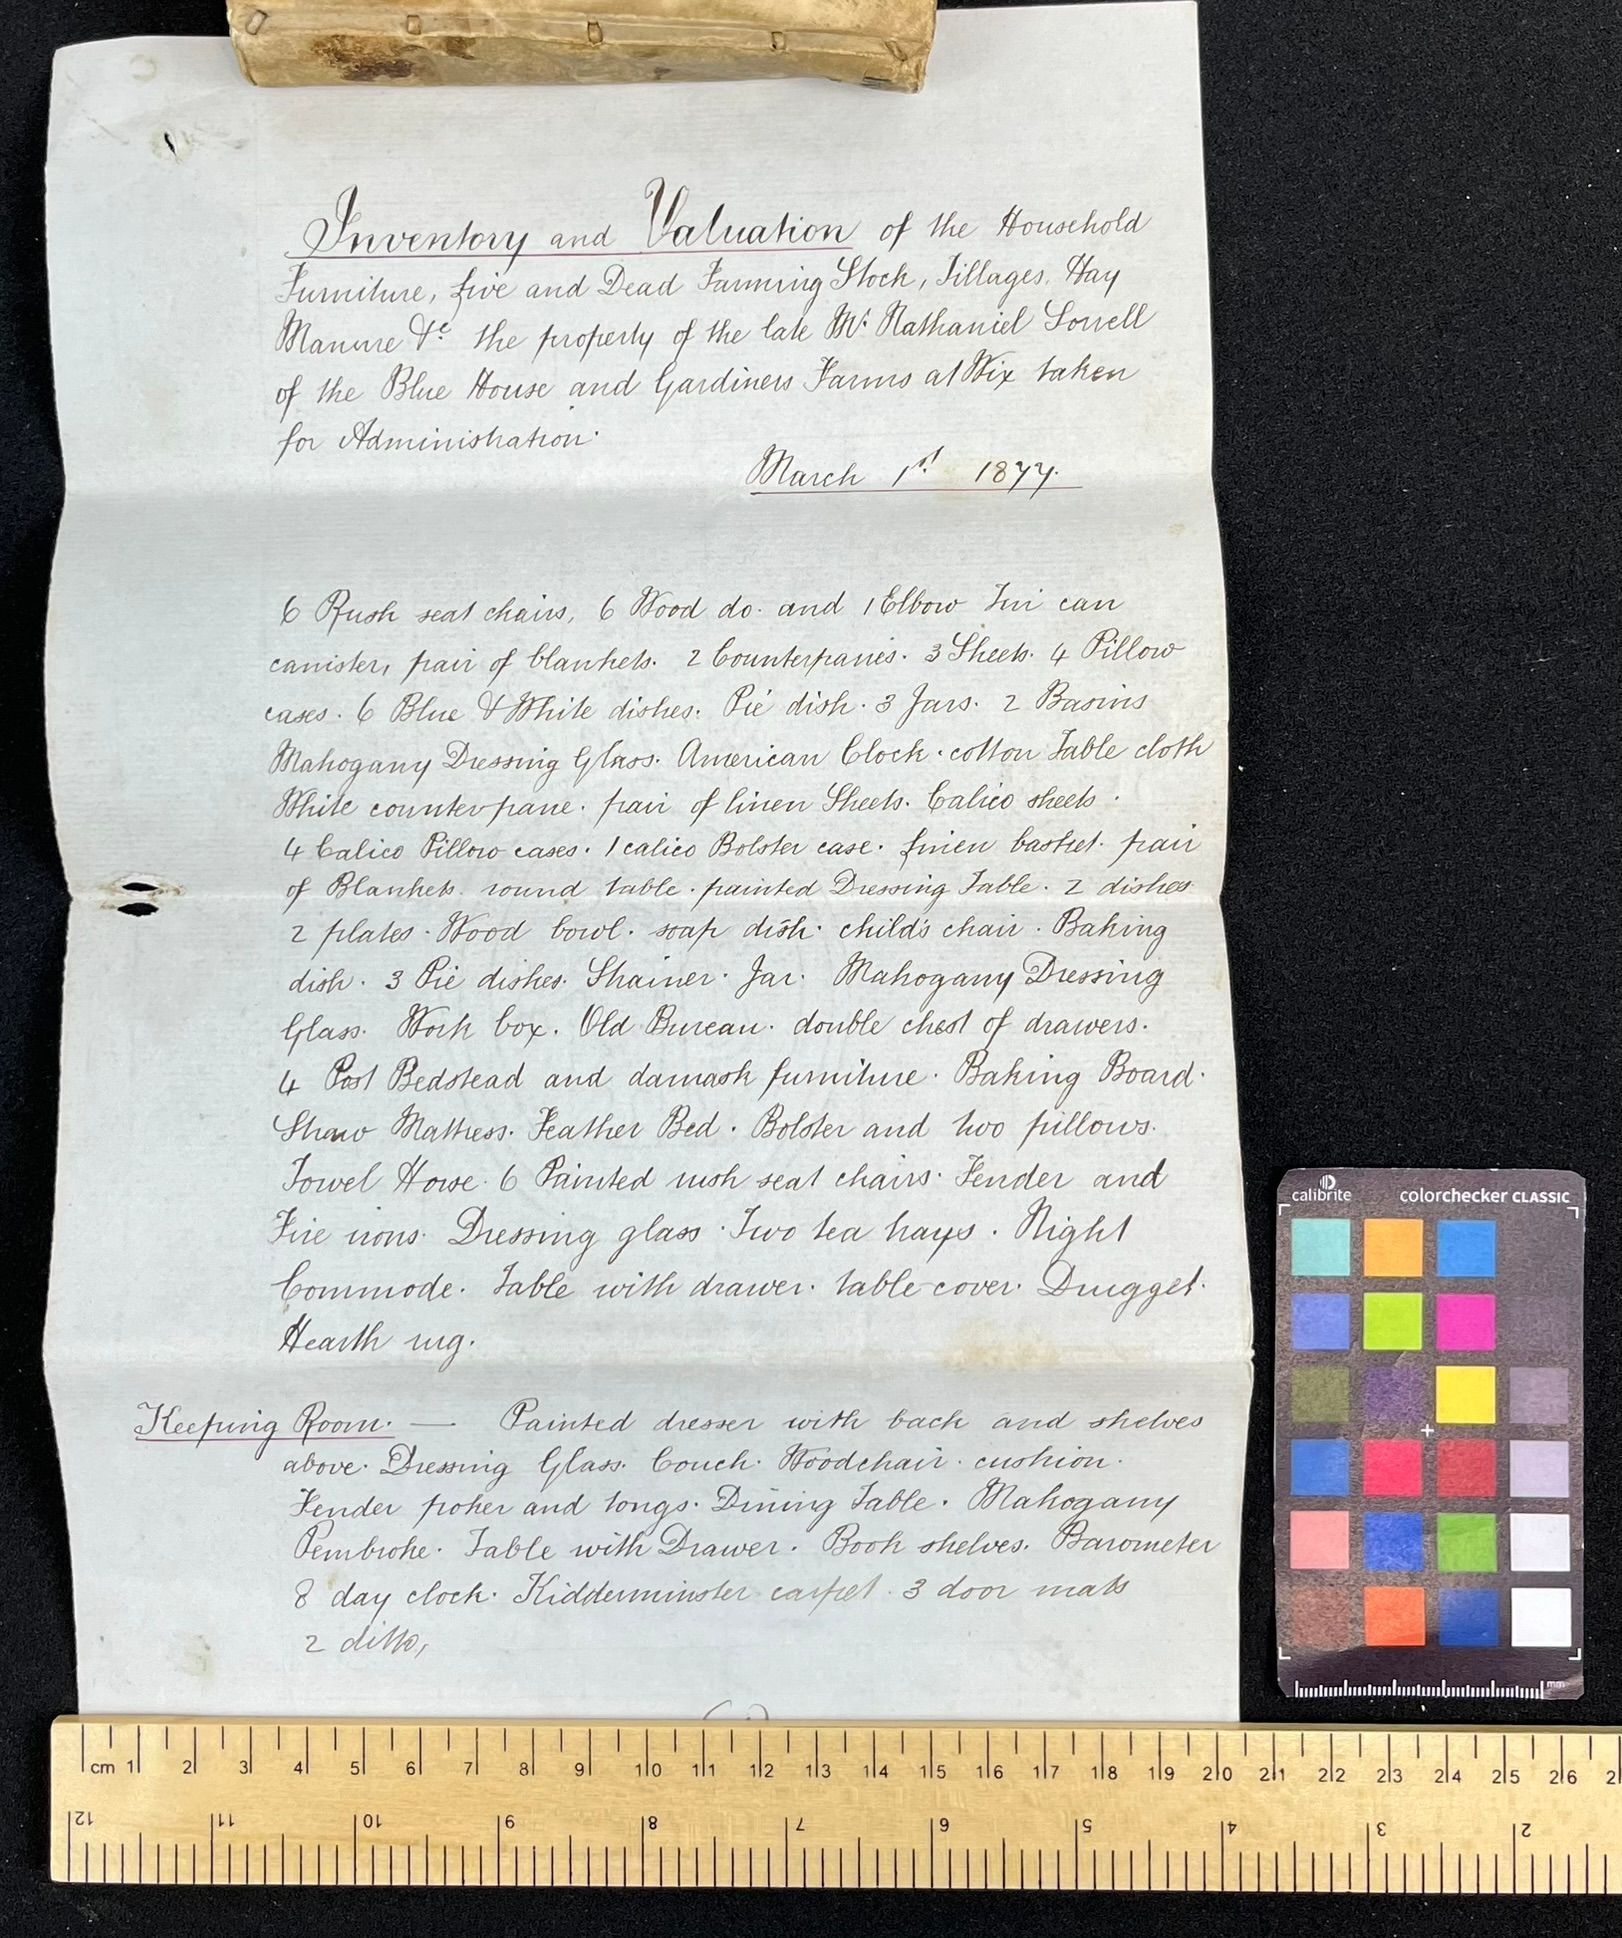 Inventory and Valuation of the Household
Furniture, Live and Dead Farming Stock, Tillages, Hay
Manure &c the property of the late Mr. Nathaniel Sorrell
of the Blue House and Gardiners Farms at Wix taken
for Administration.
March 1st. 1877.
6 Rush seat chairs, 6 Wood do. and 1 Elbow Tin can
canister, pair of blankets. 2 Counterpanes. 3 Sheets. 4 Pillow
cases. 6 Blue & White dishes. Pie dish. 3 Jars. 2 Basins
Mahogany Dressing Glass. American Clock. cotton Table cloth
White counterpane. pair of linen Sheets. Calico sheets.
4 Calico Pillow cases. 1 calico Bolster case. Linen basket. pair
of Blankets. round table. painted Dressing Table. 2 dishes
2 plates. Wood bowl. soap dish. child's chair. Baking
dish. 3 Pie dishes. Strainer. Jar. Mahogany Dressing
Glass. Work box. Old Bureau. double chest of drawers.
4 Post Bedstead and damask furniture. Baking Board.
Straw Mattress. Feather Bed. Bolster and two pillows.
Towel Horse. 6 Painted rush seat chairs. Fender and
Fire irons. Dressing glass. Two tea trays. Night
Commode. Table with drawer. table-cover. Drugget.
Hearth rug.
Keeping Room. — Painted dresser with back and shelves
above. Dressing Glass. Couch. Woodchair. cushion.
Fender poker and tongs. Dining Table. Mahogany
Pembroke. Table with Drawer. Book shelves. Barometer
8 day clock. Kidderminster carpet. 3 door mats
2 ditto,
calibrite colorchecker CLASSIC
mm
cm 1 2 3 4 5 6 7 8 9 10 11 12 13 14 15 16 17 18 19 20 21 22 23 24 25 26 2
12 11 10 9 8 7 6 5 4 3 2